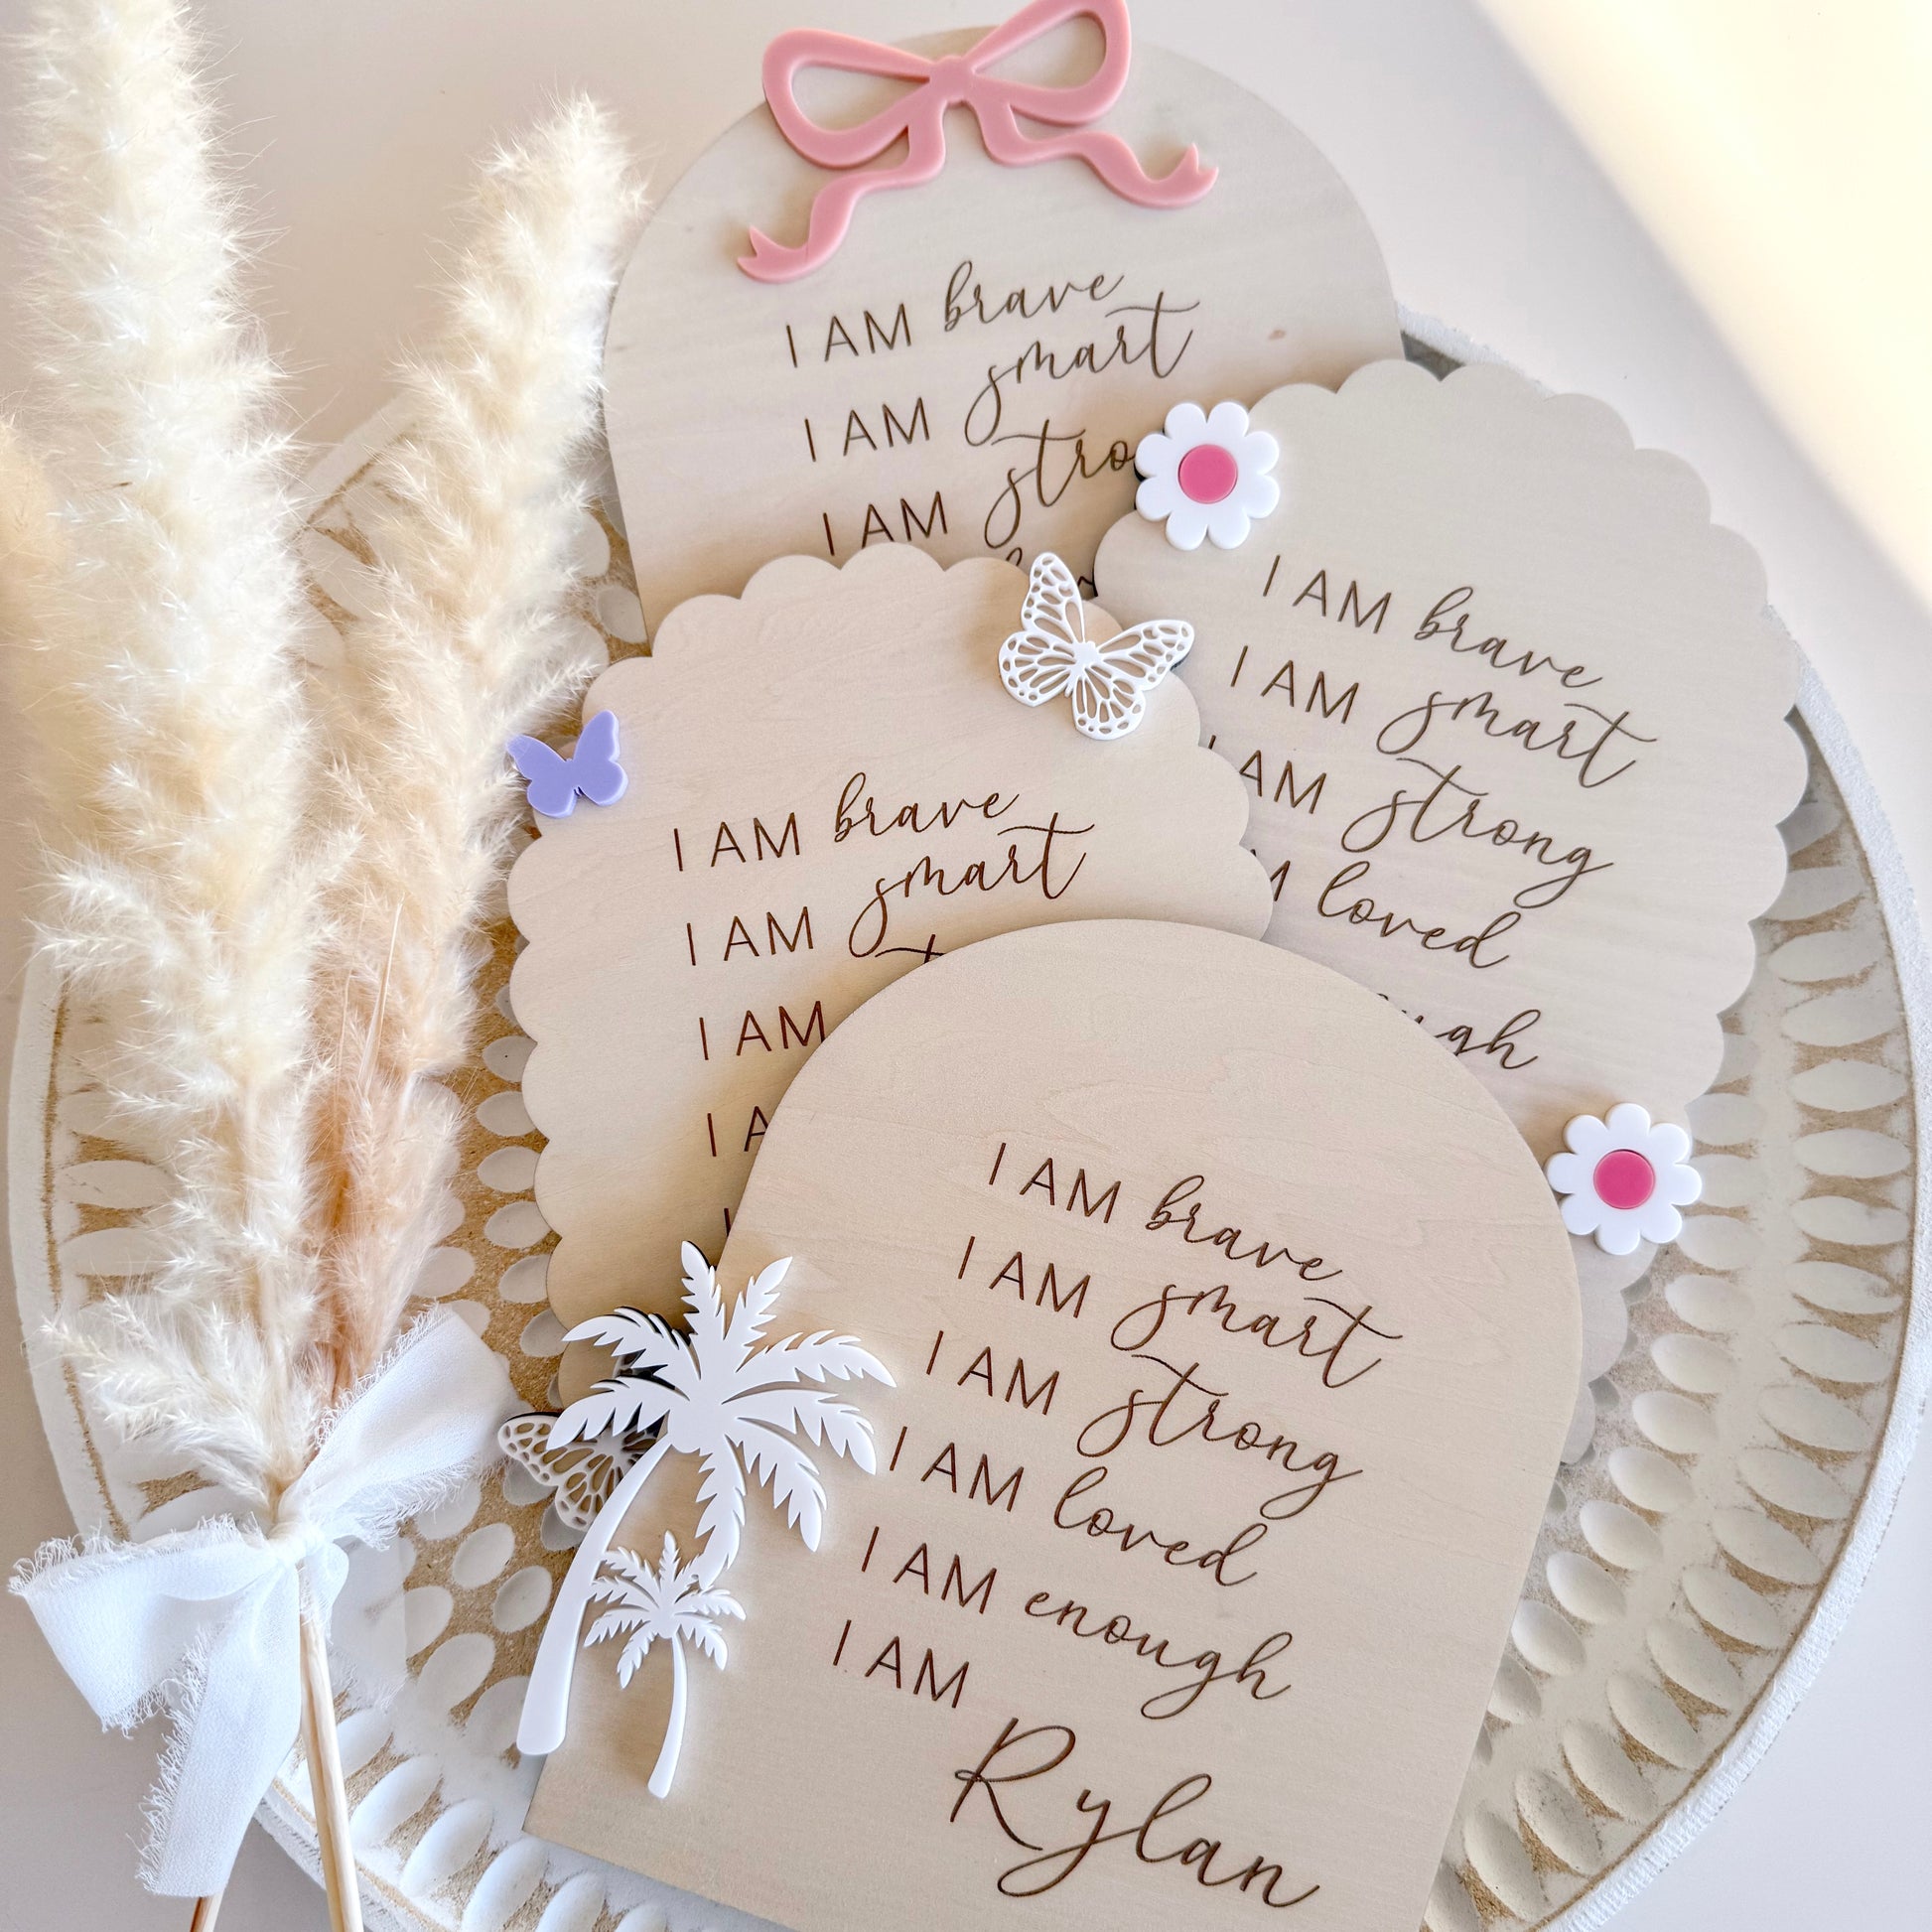 I AM brave
I AM smart
I AM
I AM brave
I AM smart
I AM strong
loved
I AM brave
I AM smart
I AM
I AM brave
I AM smart
I AM strong
I AM loved
I AM enough
I AM
Rylan